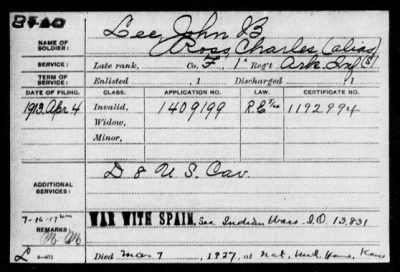 NAME OF SOLDIER:
Lee, John B
Ross, Charles (alias)
SERVICE:
Late rank, Co. F, 1" Reg't Ark Inf (S)
TERM OF SERVICE:
Enlisted , 1 Discharged , 1
DATE OF FILING. CLASS. APPLICATION NO. LAW. CERTIFICATE NO.
1913 Apr 4 Invalid, 1409199 1192994
Widow,
Minor,
ADDITIONAL SERVICES:
D 8 U S. Cav.
7-16-17
WAR WITH SPAIN, See Indian Wars I.O 13,831
REMARKS:
Died Mar 7, 1927, at Nat. Mil Home, Kans